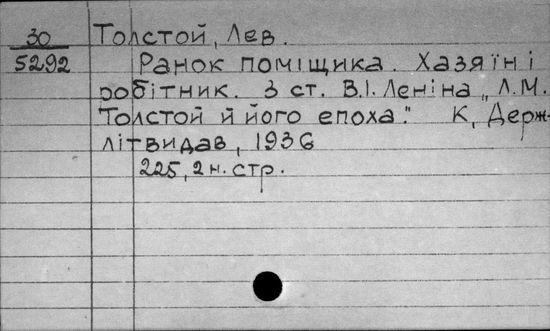 30 Толстой, Лев.
5292 Ранок поміщика. Хазяїн і
робітник. З ст. В.І. Леніна „Л.М.
Толстой й його епоха." К, Держ-
літвидав, 1936
225, 2 н. стр.